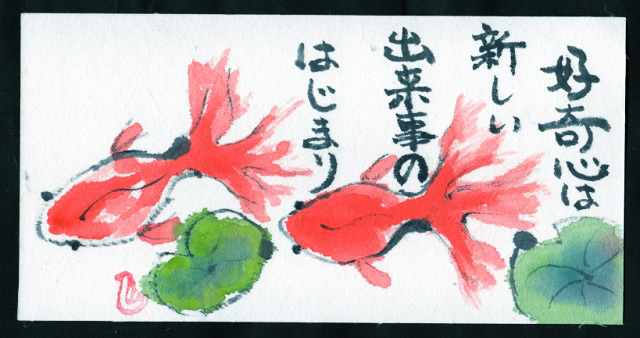 好奇心は
新しい
出来事の
はじまり